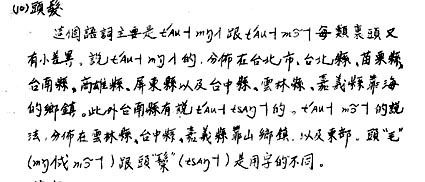 (10)頭髮
這個語詞主要是 t'Au˧ mŋ˥ 跟 t'Au˧ m3˜˥ 每類裏頭又
有小差異。說 t'Au˧ mŋ˥ 的,分佈在台北市、台北縣、苗栗縣、
台南縣、高雄縣、屏東縣以及台中縣、雲林縣、嘉義縣靠海
的鄉鎮。此外台南縣有說 t'Au˧ tsAŋ˥ 的。t'Au˧ m3˜˥ 的說
法,分佈在雲林縣、台中縣、嘉義縣靠山鄉鎮,以及東部。頭“毛”
(mŋ˧或 m3˜˥)跟頭“鬃”(tsAŋ˥)是用字的不同。